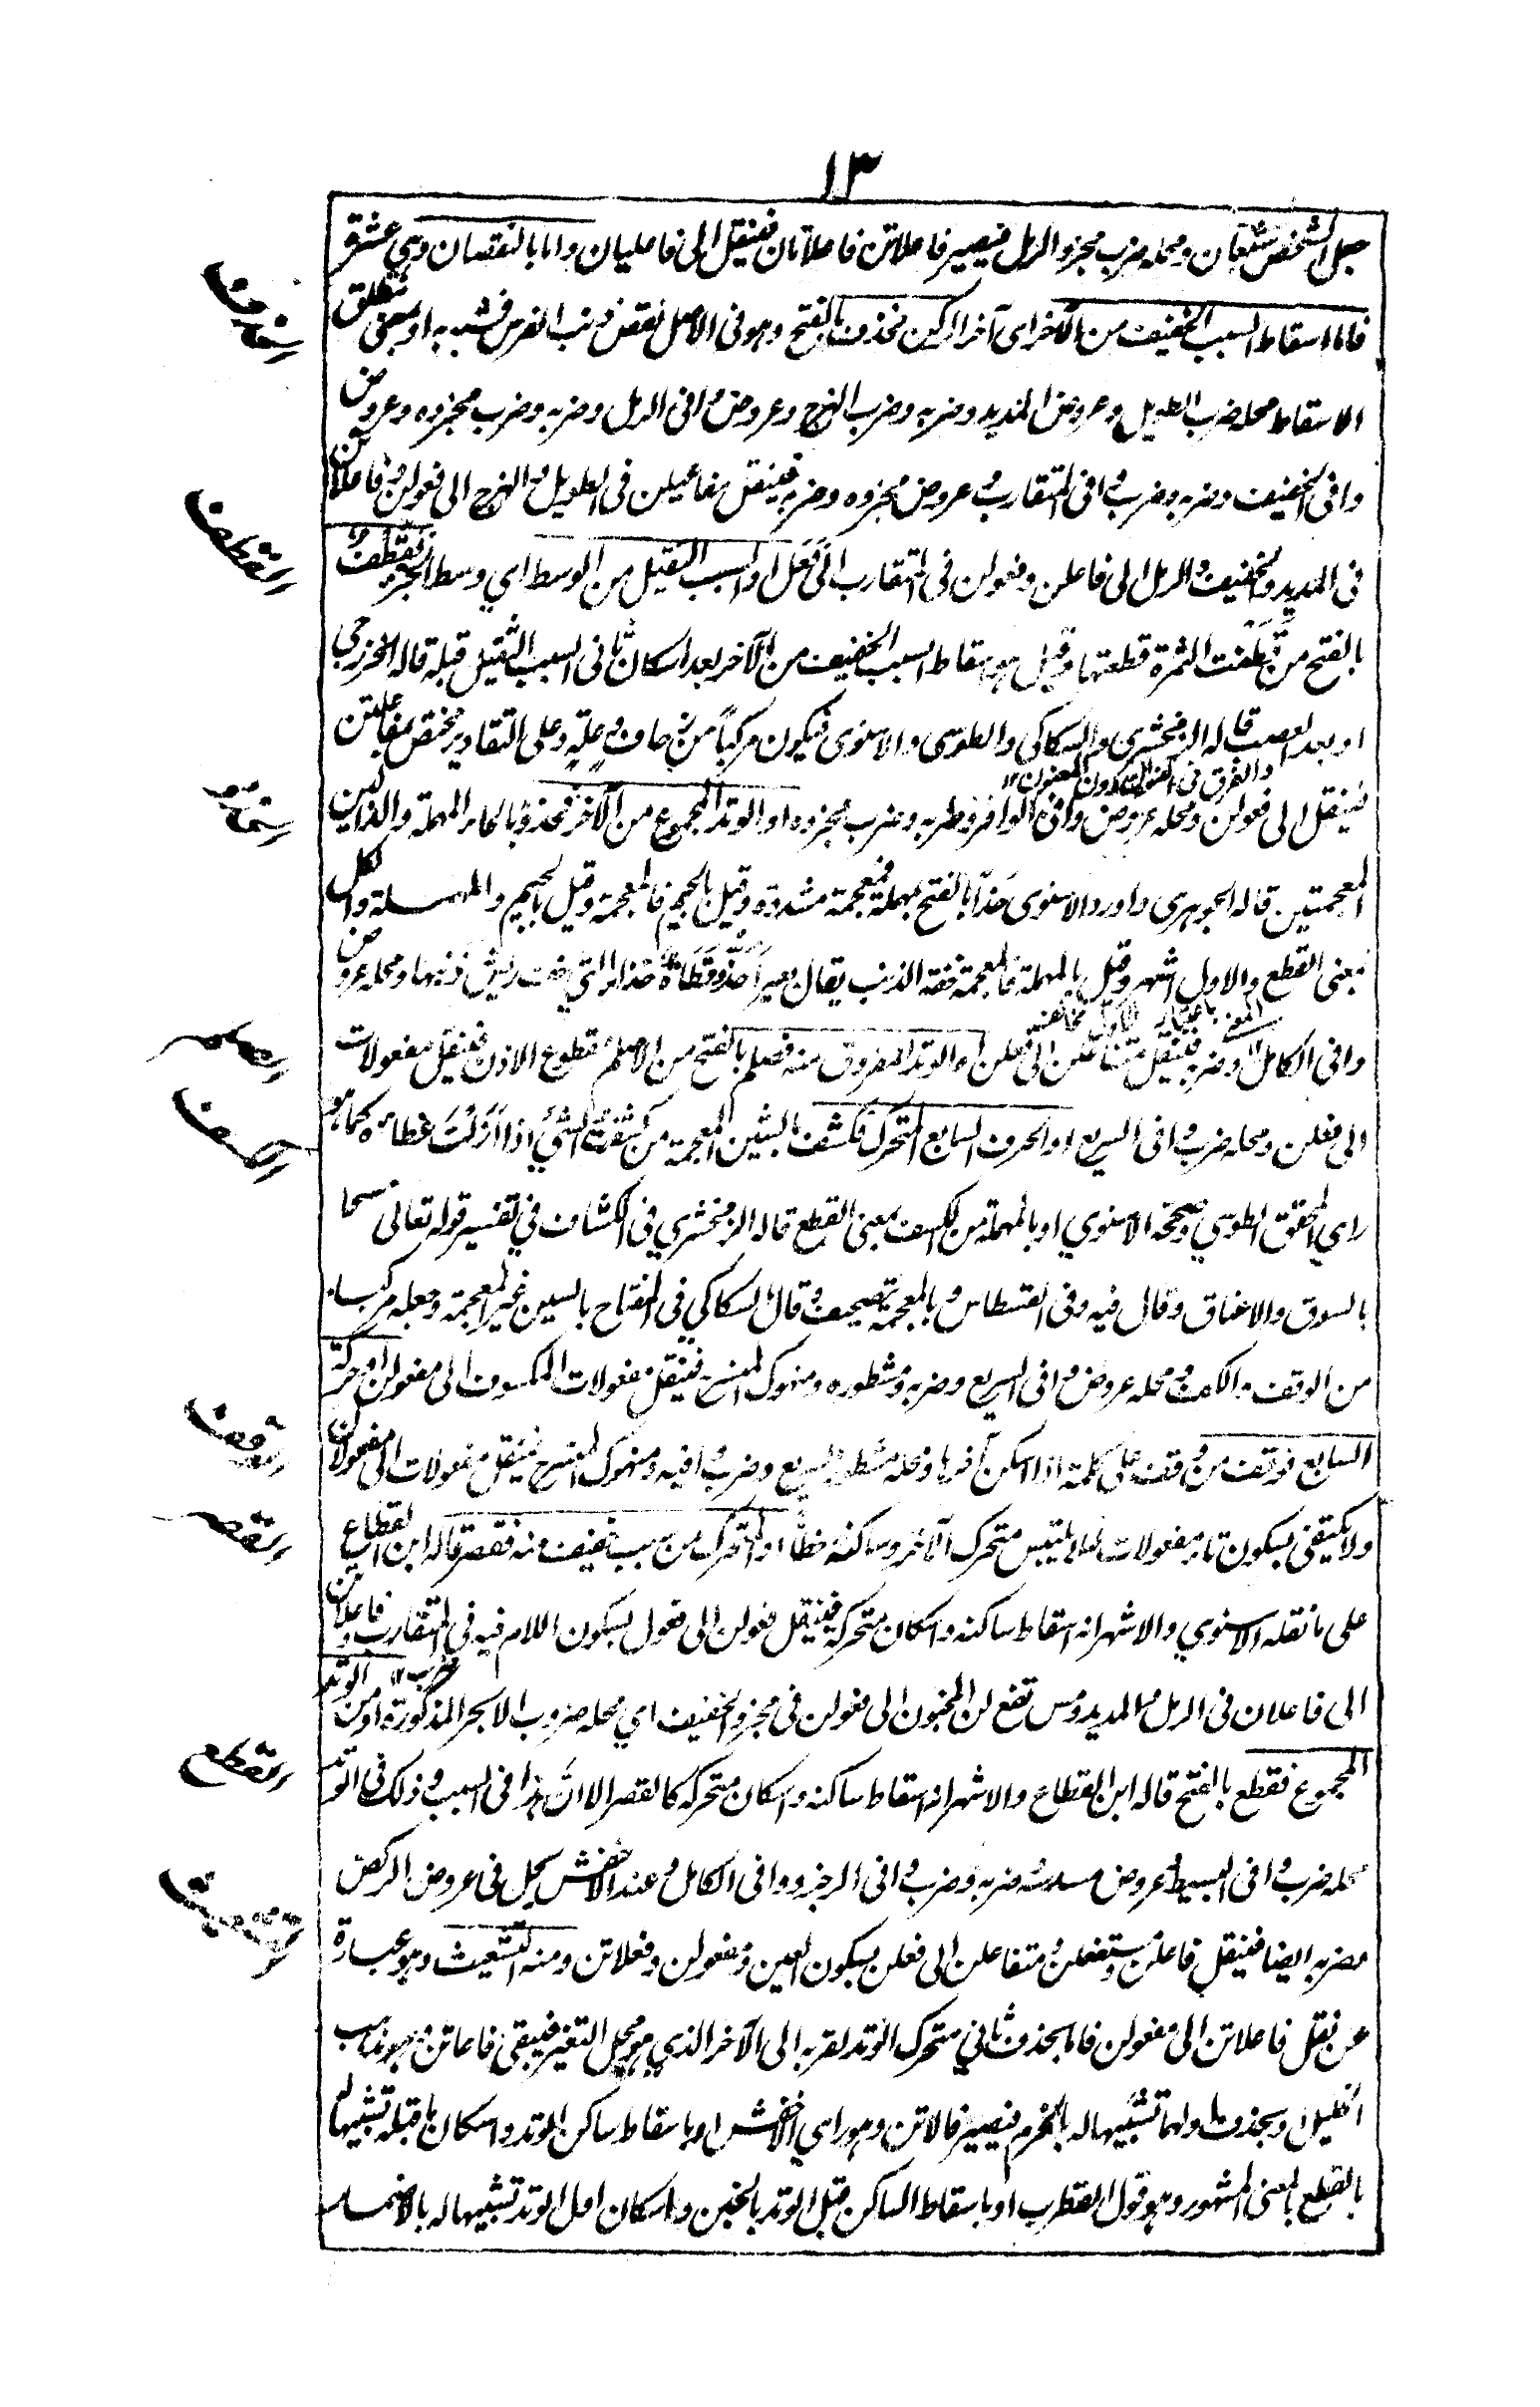 ١٣
جبل الشخص شبعان ومحله ضرب مجزو الرمل فيصير فاعلاتن فاعلاتان فينقل الى فاعليان واما بالنقصان وهي عشرة
فاما اسقاط السبب الخفيف من الآخر اى آخر الركن فحذف بالفتح وهو فى الاصل نقص ذنب الفرس فشبه به او بمعنى مطلق
الاسقاط محله ضرب الطويل وعروض المديد وضربه وضرب الهزج وعروض وافى الرمل وضربه وضرب مجزوه وعروض
وافى الخفيف وضربه وضرب وافى المتقارب وعروض مجزوه وضربه فينقل مفاعيلن فى الطويل والهزج الى فعولن وفاعلاتن
فى المديد والخفيف والرمل الى فاعلن وفعولن فى المتقارب الى فَعَل او السبب الثقيل من الوسط اي وسط الجزء فقطف
بالفتح من قطفت الثمرة قطعتها وقيل هو اسقاط السبب الخفيف من الآخر بعد اسكان ثانى السبب الثقيل قبله قاله الخزرجي
او بعد العصب قاله الزمخشرى والسكاكى والطوسى والاسنوى فيكون مركباً من زحاف وعلةٍ وعلى التقادير مختص بمفاعلتن
والفرق فى دون المعنون ١٢
فينقل الى فعولن ومحله عروض وافى الوافر وضربه وضرب مجزوه او الوتد المجموع من الآخر فحذذ بالحاء المهملة والذالين
المعجمتين قاله الجوهرى واورد الاسنوى حَذّا بالفتح بمهملة فمعجمة مشددة وقيل بالجيم فالمعجمة وقيل بالجيم والمهملة والكل
بمعنى القطع والاول اشهر وقيل بالمهملة فالمعجمة خفة الذنب يقال بعير احذ وقطاة حذاء التي خفت ريش ذنبها ومحله عروض
وافى الكامل وضربه فينقل متفاعلن الى فعلن او الوتد المفروق منه فصلم بالفتح من الاصلم مقطوع الاذن فينقل مفعولات
الى فعلن ومحله ضرب وافى السريع او الحرف السابع المتحرك فكشف بالشين المعجمة من كشفت الشئ اذا ازلت غطائه كما هو
راي المحقق الطوسي وصححه الاسنوي او بالمهملة من الكسف بمعنى القطع قاله الزمخشري فى الكشاف في تفسير قوله تعالى مسحا
بالسوق والاعناق وقال فيه وفى القسطاس وبالمعجمة تصحيف وقال السكاكي في المفتاح بالسين غير المعجمة وجعله مركبا
من الوقف والكف ومحله عروض وافى السريع وضربه ومشطوره ومنهوك المنسرح فينقل مفعولات المكسوف الى مفعولن او حركة
السابع فوقف من وقف على كلمة اذا اسكن آخرها ومحله مشطور السريع وضرب وافيه ومنهوك المنسرح فينقل مفعولات الى مفعولان
ولا يكتفى بسكون تاء مفعولات لئلا يلتبس متحرك الآخر وساكنه خطّاً او المتحرك من سبب خفيف منه فقصر قاله ابن القطاع
على ما نقله الاسنوي والاشهر انه اسقاط ساكنه واسكان متحركه فينقل فعولن الى فعول بسكون اللام فيه في المتقارب وفاعلاتن
الى فاعلان فى الرمل والمديد ومس تفع لن المخبون الى فعولن فى مجزو الخفيف اي محله ضروب الابحر المذكورة او من الوتد
المجموع فقطع بالفتح قاله ابن القطاع والاشهر انه اسقاط ساكنه واسكان متحركه كالقصر الا انّ هذا فى السبب وذلك فى الوتد
محله ضرب وافى البسيط وعروض مسدسه وضربه وضرب وافى الرجز ووافى الكامل وعند الاخفش يحل فى عروض الركض
وضربه ايضا فينقل فاعلن ومستفعلن ومتفاعلن الى فعلن بسكون العين ومفعولن وفعلاتن ومنه التشعيث وهو عبارة
عن نقل فاعلاتن الى مفعولن فاما بحذف ثاني متحرك الوتد لقربه الى الآخر الذي هو محل التغير فيبقى فاعاتن وهو مذهب
الخليل او بحذف اولهما تشبيها له بالخرم فيصير فالاتن وهو راي الاخفش او باسقاط ساكن الوتد واسكان ما قبله تشبيها له
بالقطع بالمعنى المشهور وهو قول القطرب او باسقاط الساكن قبل الوتد بالخبن واسكان اول الوتد تشبيها له بالاضمار
الحذف
القطف
الحذذ
الصلم
الكسف
الوقف
القصر
القطع
التشعيث